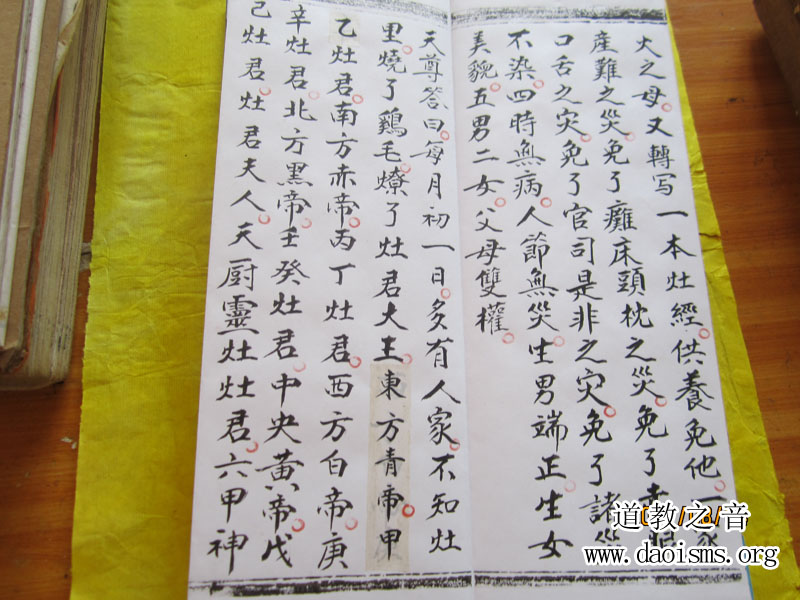 火之母。又轉写一本灶經。供養免他。一家
産難之災。免了癱床頭枕之災。免了
口舌之灾。免了官司是非之灾。免了諸災
不染。四時無病。人節無災。生男端正。生女
美貌。五男二女。父母雙權。
天尊答曰。每月初一日。多有人家。不知灶
里燒了鷄毛。燎了灶君大王。東方青帝。甲
乙灶君。南方赤帝。丙丁灶君。西方白帝。庚
辛灶君。北方黑帝。壬癸灶君。中央黄帝。戊
己灶君。灶君夫人。天厨靈灶灶君。六甲神
道教之音
www.daoisms.org